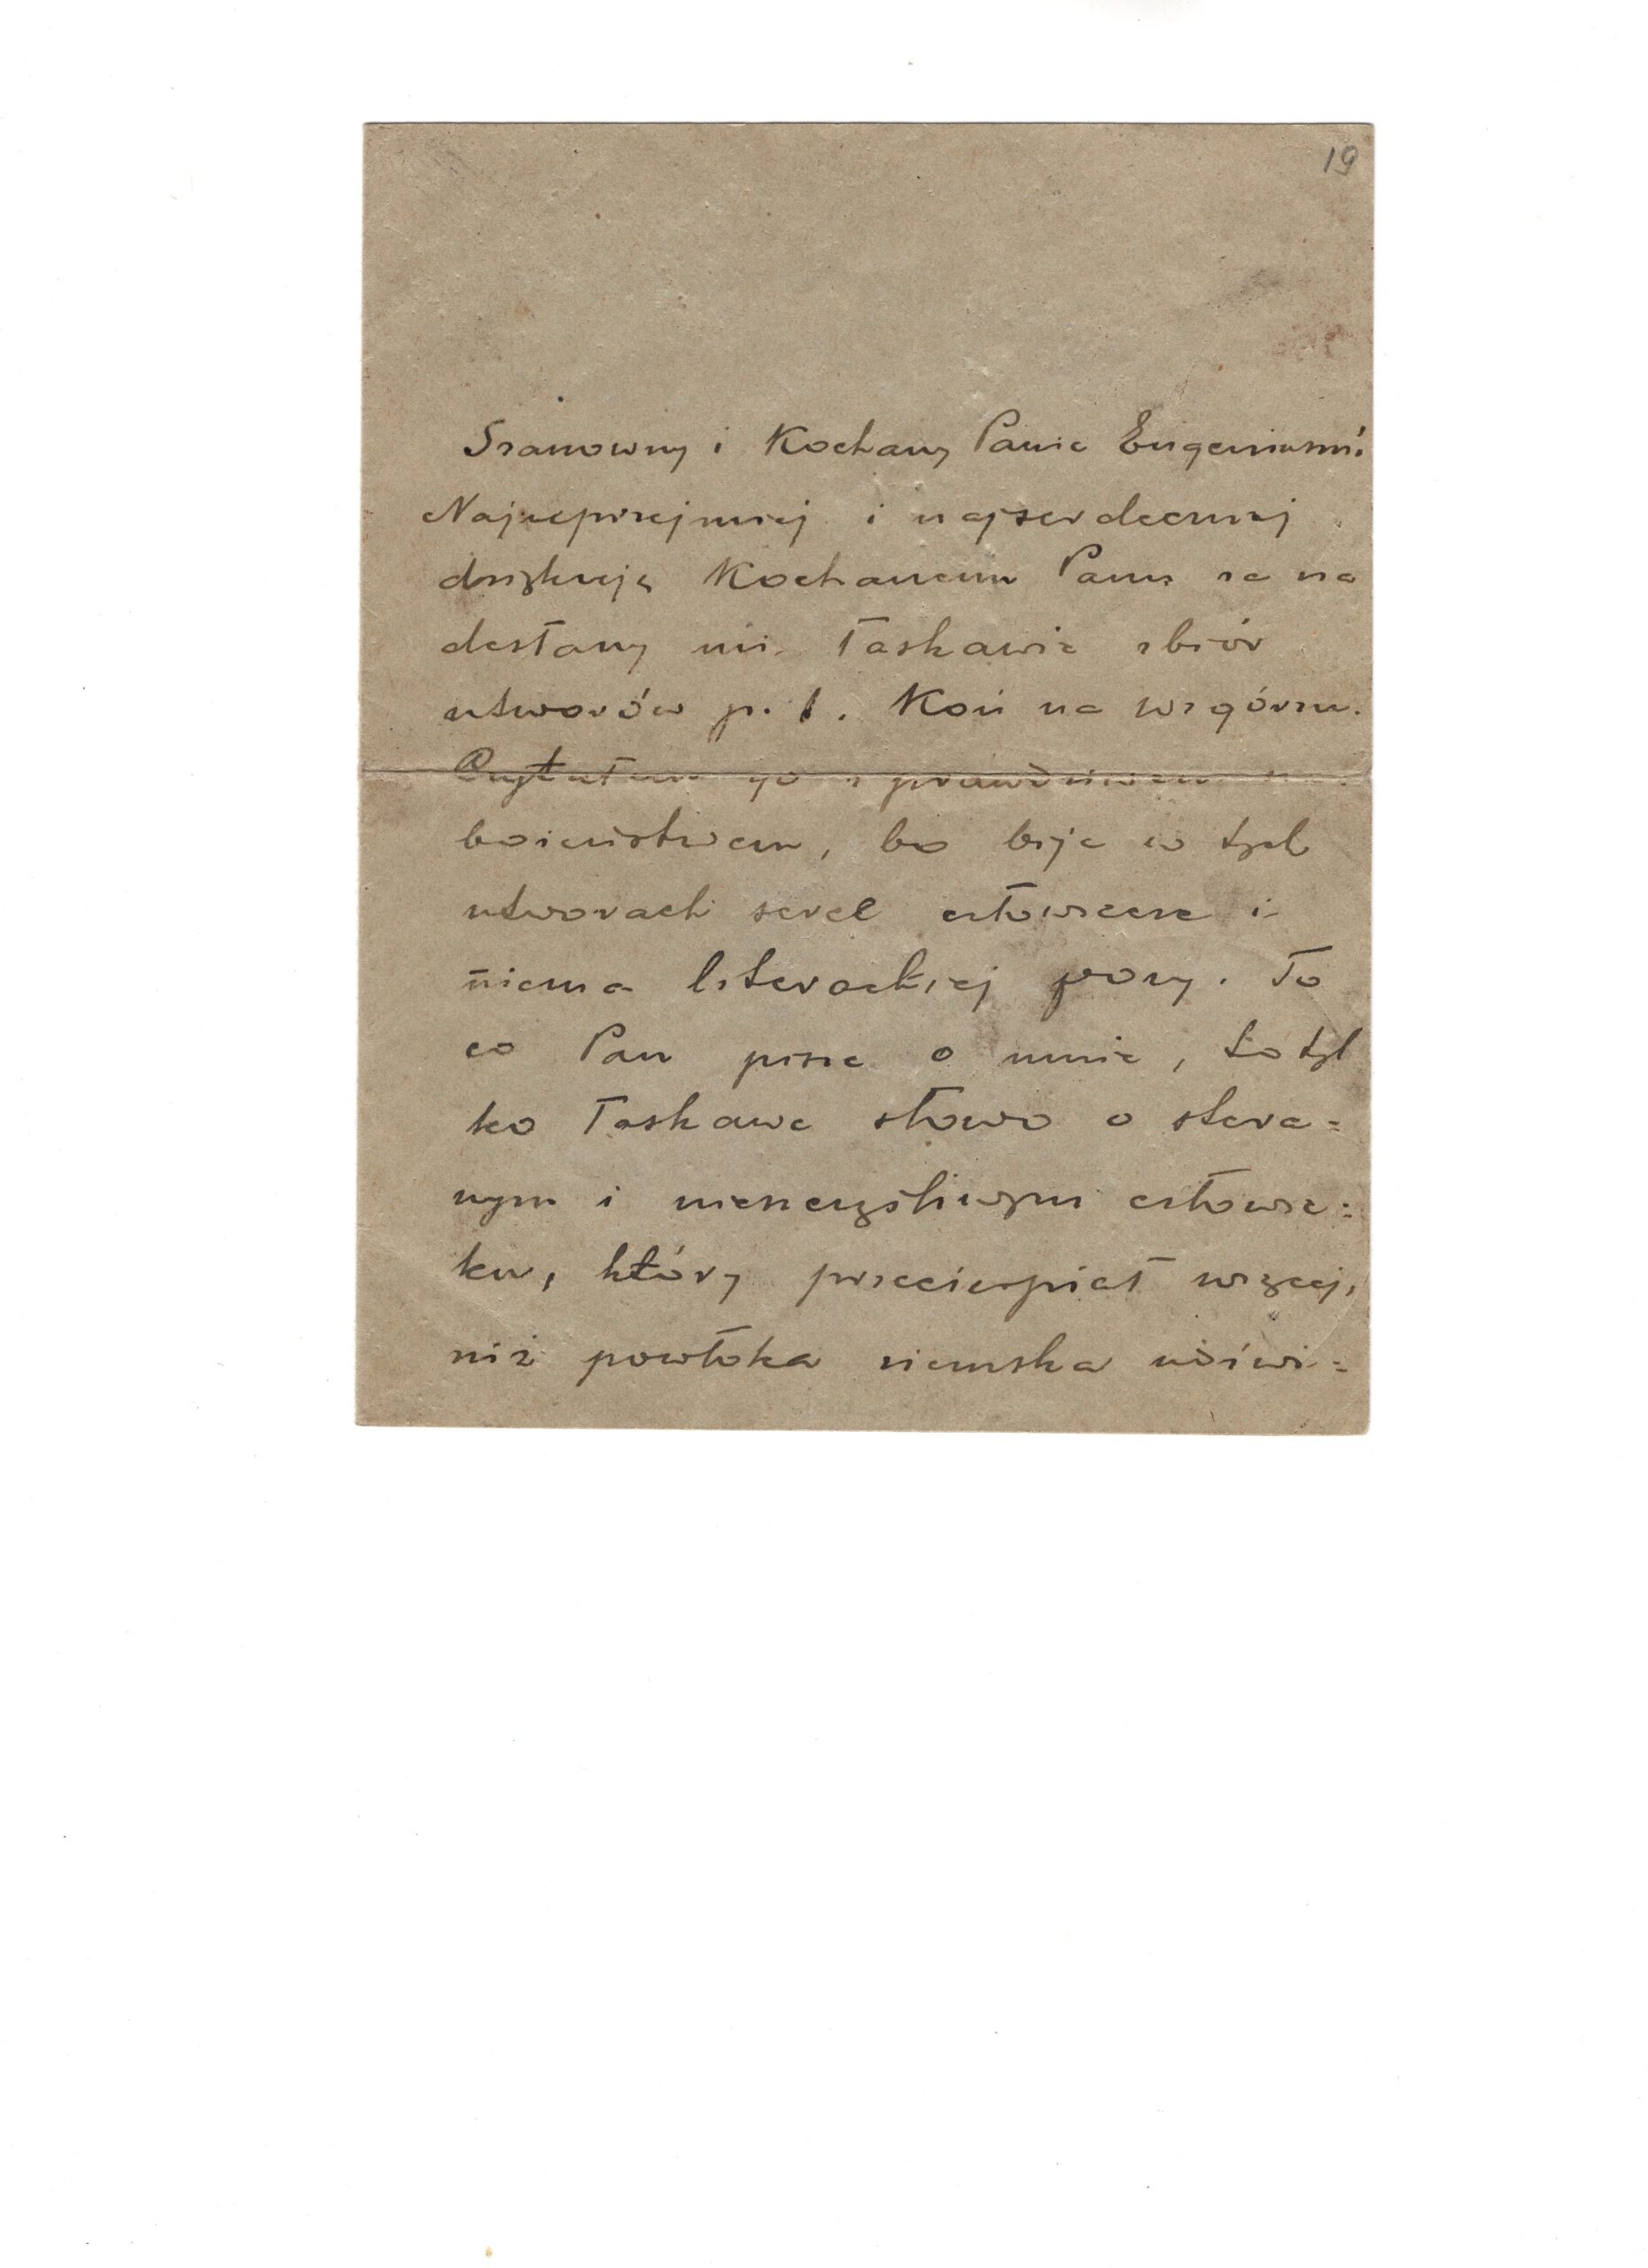 19
Szanowny i Kochany Panie Eugeniuszu!
Najuprzejmiej i najserdeczniej
dziękuję Kochanemu Panu za na
desłany mi łaskawie zbiór
utworów p. t. Koń na wzgórzu.
Czytałem go z prawdziwem
bożeństwem, bo bije w tych
utworach serce człowiecze i
niema literackiej pozy. To
co Pan pisze o mnie, to tyl
ko łaskawe słowo o stera=
nym i nieszczęśliwym człowie=
ku, który przecierpiał więcej,
niż powłoka ziemska udźwi=